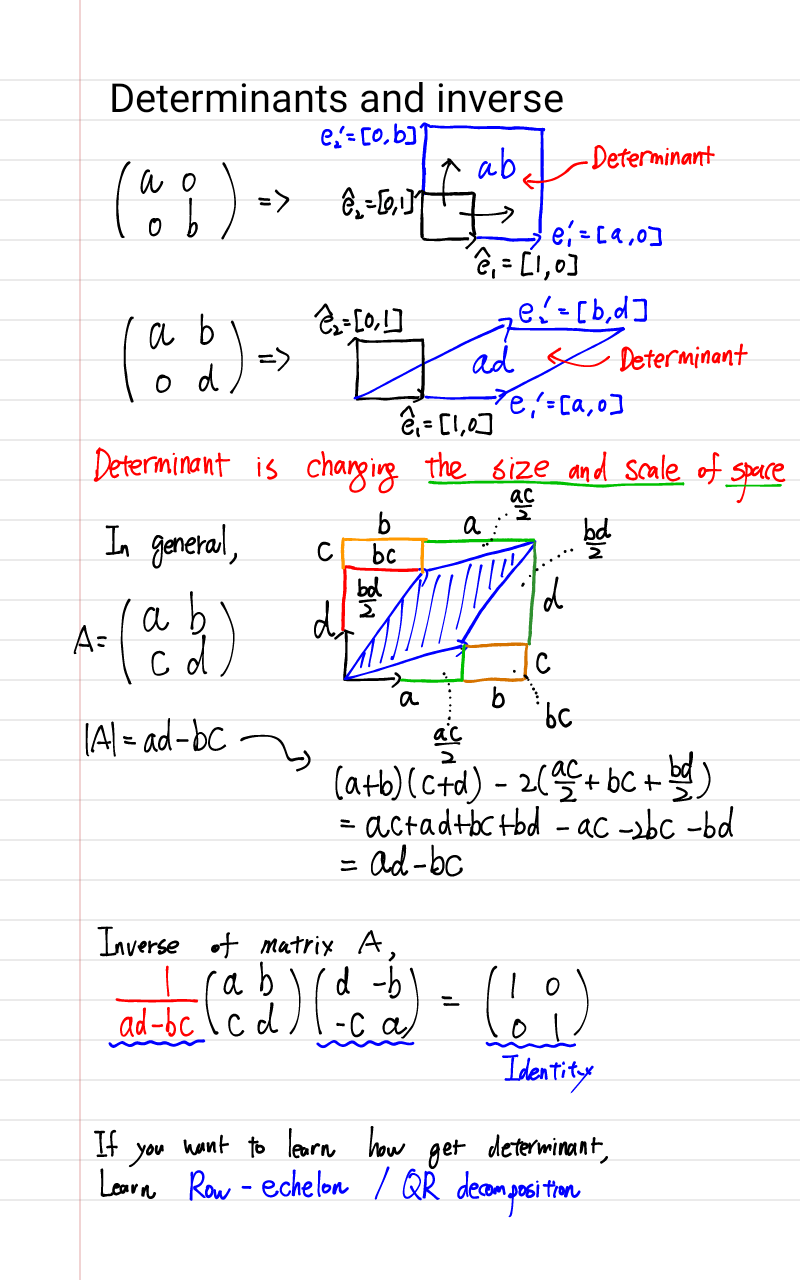 Determinants and inverse
e₂′=[0,b]
ab
Determinant
(a 0
0 b) =>
ê₂=[0,1]
e₁′=[a,0]
ê₁=[1,0]
ê₂=[0,1]
e₂′=[b,d]
(a b
0 d) =>
ad
Determinant
e₁′=[a,0]
ê₁=[1,0]
Determinant is changing the size and scale of space
In general,
b a ac/2
c bc bd/2
bd/2
d d
A=(a b
c d)
c
a b
bc
ac/2
|A|=ad-bc
(a+b)(c+d) - 2(ac/2+bc+bd/2)
= ac+ad+bc+bd - ac -2bc -bd
= ad-bc
Inverse of matrix A,
1/(ad-bc) (a b
c d) (d -b
-c a) = (1 0
0 1)
Identity
If you want to learn how get determinant,
Learn Row-echelon / QR decomposition